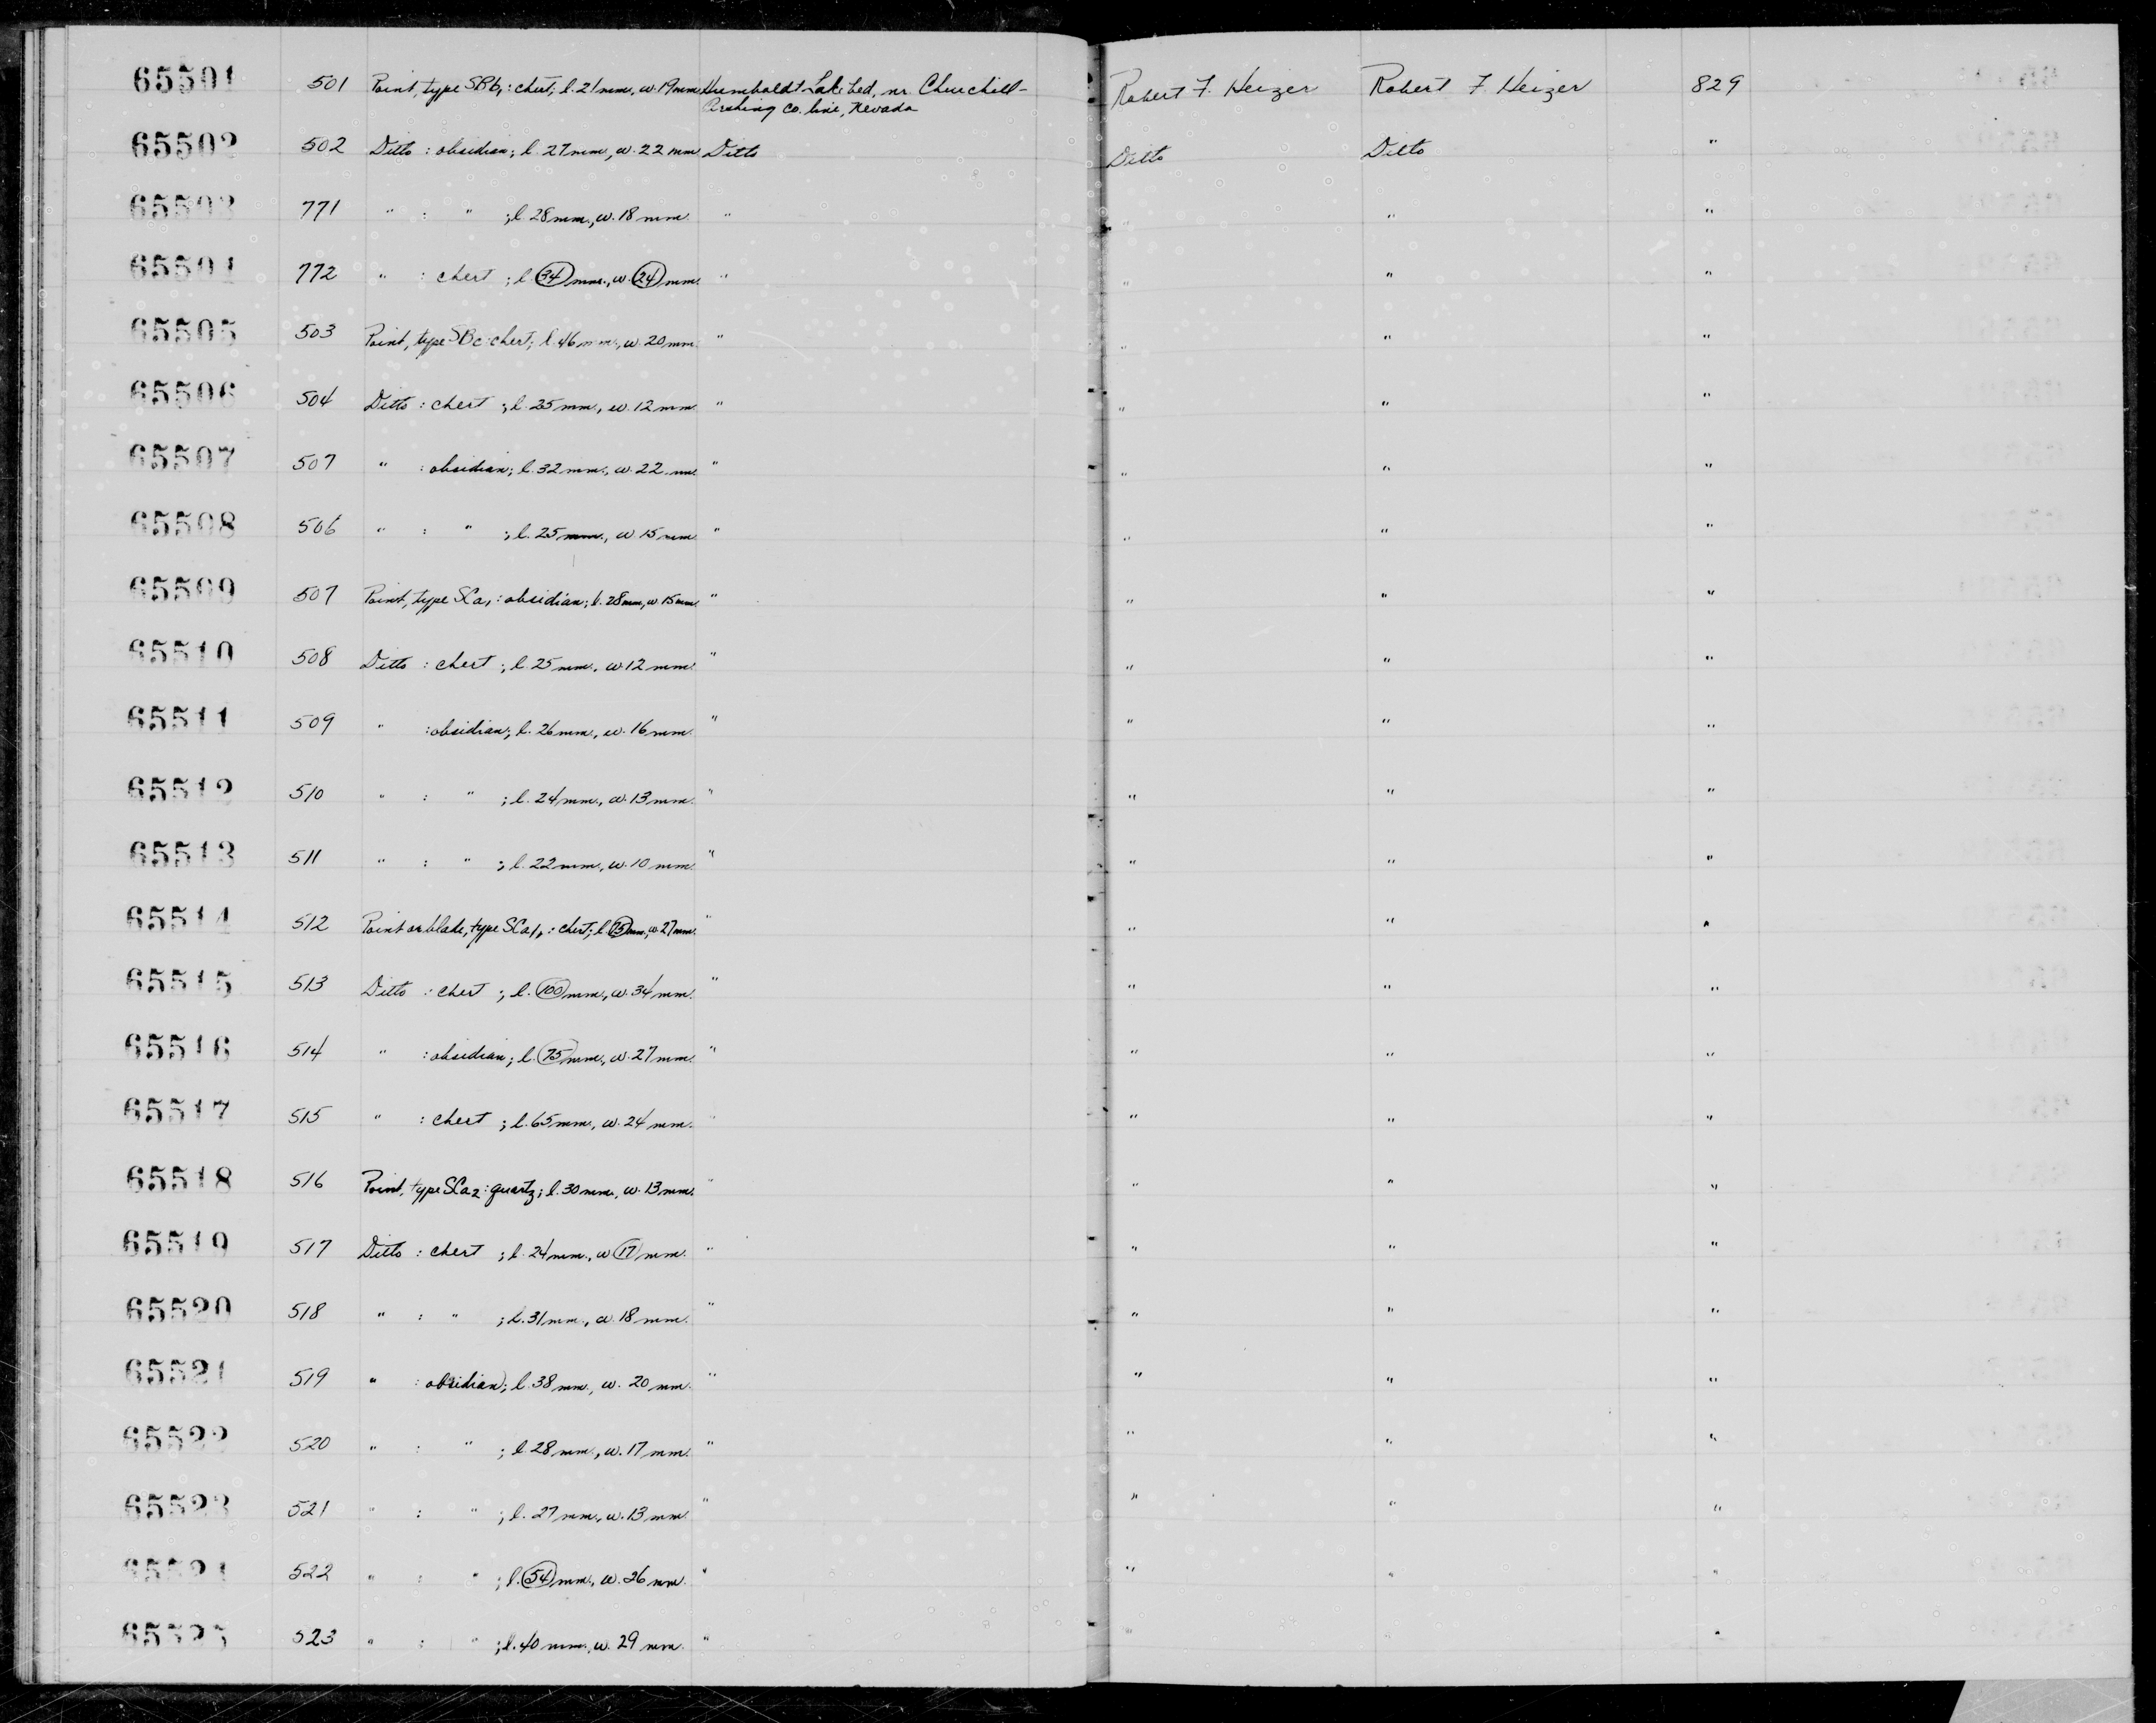 65501 501 Point, type SBb1: chert; l. 21 mm, w. 19 mm Humboldt Lake bed, nr. Churchill- Robert F. Heizer Robert F. Heizer 829
Pershing Co. line, Nevada
65502 502 Ditto : obsidian; l. 27 mm, w. 22 mm Ditto Ditto Ditto "
65503 771 " : " ; l. 28 mm., w. 18 mm. " " " "
65504 772 " : chert ; l. 34 mm., w. 24 mm. " " " "
65505 503 Point, type SBc: chert; l. 46 mm., w. 20 mm. " " " "
65506 504 Ditto : chert ; l. 25 mm., w. 12 mm. " " " "
65507 507 " : obsidian; l. 32 mm., w. 22 mm " " " "
65508 506 " : " ; l. 25 mm., w. 15 mm " " " "
65509 507 Point, type SCa1: obsidian; l. 28 mm, w. 15 mm. " " " "
65510 508 Ditto : chert ; l. 25 mm., w. 12 mm. " " " "
65511 509 " : obsidian; l. 26 mm., w. 16 mm. " " " "
65512 510 " : " ; l. 24 mm., w. 13 mm. " " " "
65513 511 " : " ; l. 22 mm., w. 10 mm. " " " "
65514 512 Point or blade, type : chert; l. 75 mm, w. 27 mm. " " " "
65515 513 Ditto : chert ; l. 100 mm., w. 34 mm. " " " "
65516 514 " : obsidian; l. 75 mm., w. 27 mm. " " " "
65517 515 " : chert ; l. 65 mm., w. 24 mm. " " " "
65518 516 Point, type SCa2: quartz; l. 30 mm., w. 13 mm. " " " "
65519 517 Ditto : chert ; l. 24 mm., w. 17 mm. " " " "
65520 518 " : " ; l. 31 mm., w. 18 mm. " " " "
65521 519 " : obsidian; l. 38 mm., w. 20 mm. " " " "
65522 520 " : " ; l. 28 mm., w. 17 mm. " " " "
65523 521 " : " ; l. 27 mm., w. 13 mm. " " " "
65524 522 " : " ; l. 54 mm., w. 26 mm. " " " "
65525 523 " : " ; l. 40 mm., w. 29 mm. " " " "